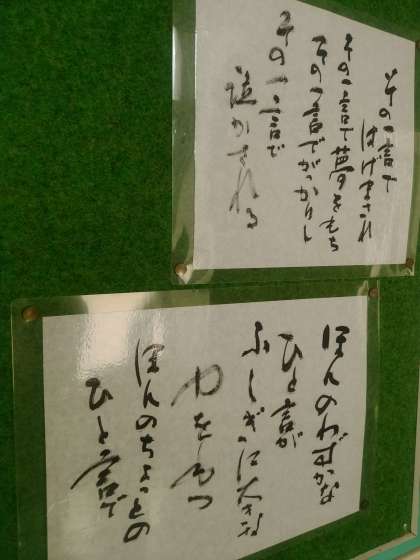 その一言で
はげまされ
その一言で夢をもち
その一言でがっかりし
その一言で
泣かされる
ほんのわずかな
ひと言が
ふしぎに大きな
力をもつ
ほんのちょっとの
ひと言で